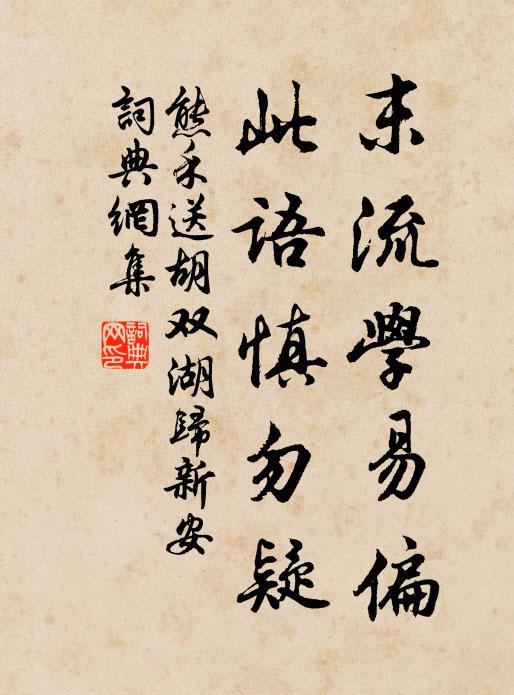 末流學易偏
此語慎勿疑
熊禾送胡双湖歸新安
詞典網集
詞典網印